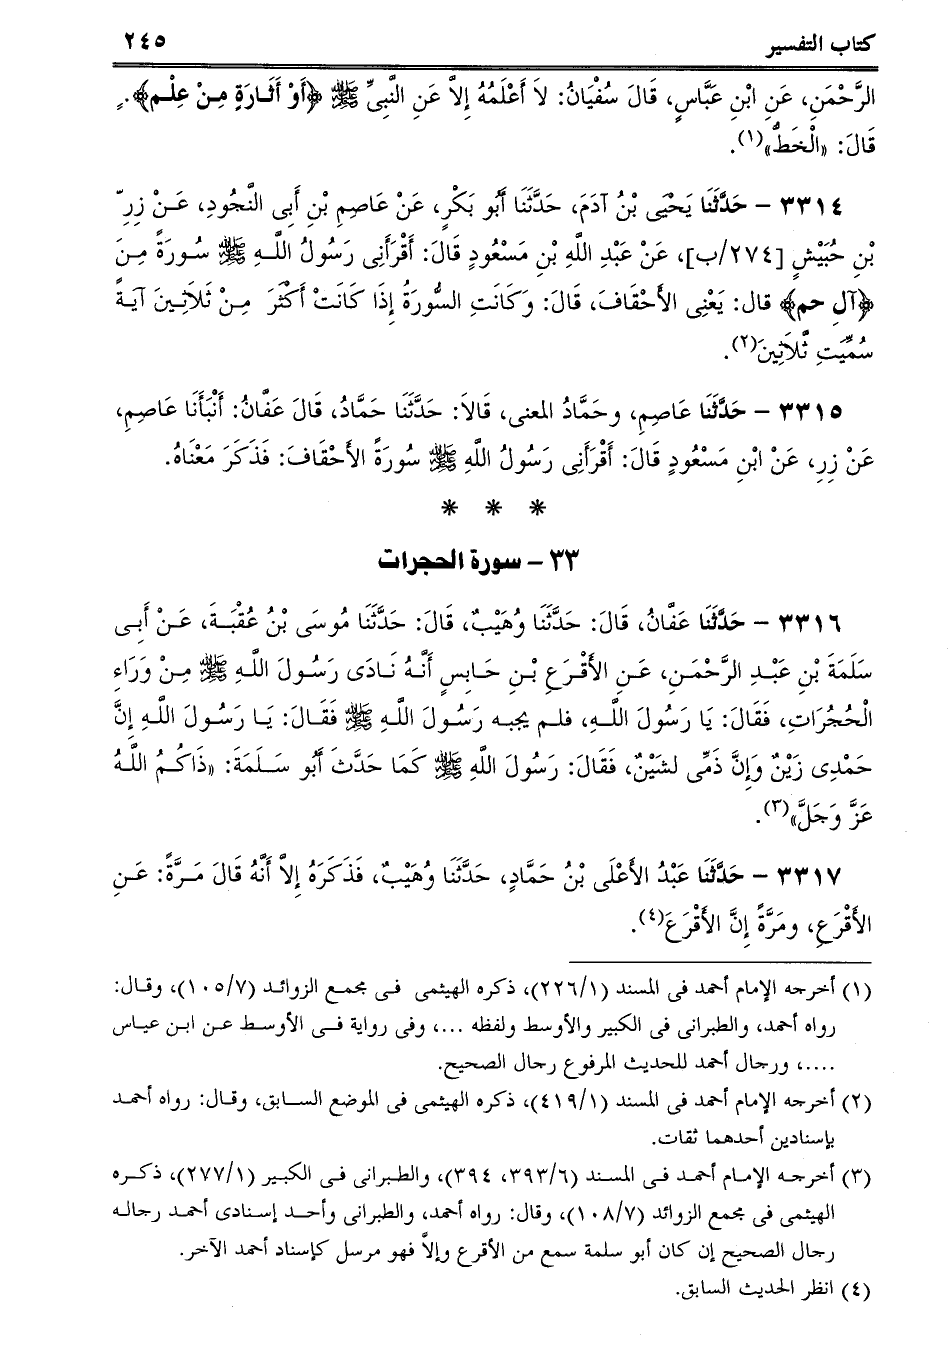 كتاب التفسير ٢٤٥
الرَّحْمَنِ، عَنِ ابْنِ عَبَّاسٍ، قَالَ سُفْيَانُ: لاَ أَعْلَمُهُ إِلاَّ عَنِ النَّبِيِّ ﷺ ﴿أَوْ أَثَارَةٍ مِنْ عِلْمٍ﴾.
قَالَ: «الْخَطُّ»(١).
٣٣١٤ - حَدَّثَنَا يَحْيَى بْنُ آدَمَ، حَدَّثَنَا أَبُو بَكْرٍ، عَنْ عَاصِمِ بْنِ أَبِى النَّجُودِ، عَنْ زِرِّ
بْنِ حُبَيْشٍ [٢٧٤/ب]، عَنْ عَبْدِ اللَّهِ بْنِ مَسْعُودٍ قَالَ: أَقْرَأَنِى رَسُولُ اللَّهِ ﷺ سُورَةً مِنَ
﴿آلِ حم﴾ قال: يَعْنِى الأَحْقَافَ، قَالَ: وَكَانَتِ السُّورَةُ إِذَا كَانَتْ أَكْثَرَ مِنْ ثَلاَثِينَ آيَةً
سُمِّيَتِ ثَّلاَثِينَ(٢).
٣٣١٥ - حَدَّثَنَا عَاصِمٍ، وحَمَّادُ المعنى، قَالاَ: حَدَّثَنَا حَمَّادُ، قَالَ عَفَّانُ: أَنْبَأَنَا عَاصِمٍ،
عَنْ زِرٍ، عَنْ ابْنِ مَسْعُودٍ قَالَ: أَقْرَأَنِى رَسُولُ اللَّهِ ﷺ سُورَةً الأَحْقَافَ: فَذَكَرَ مَعْنَاهُ.
* * *
٣٣ - سورة الحجرات
٣٣١٦ - حَدَّثَنَا عَفَّانُ، قَالَ: حَدَّثَنَا وُهَيْبٌ، قَالَ: حَدَّثَنَا مُوسَى بْنُ عُقْبَةَ، عَنْ أَبِى
سَلَمَةَ بْنِ عَبْدِ الرَّحْمَنِ، عَنِ الأَقْرَعِ بْنِ حَابِسٍ أَنَّهُ نَادَى رَسُولَ اللَّهِ ﷺ مِنْ وَرَاءِ
الْحُجُرَاتِ، فَقَالَ: يَا رَسُولَ اللَّهِ، فلم يجبه رَسُولَ اللَّهِ ﷺ فَقَالَ: يَا رَسُولَ اللَّهِ إِنَّ
حَمْدِى زَيْنٌ وَإِنَّ ذَمِّى لشَيْنٌ، فَقَالَ: رَسُولَ اللَّهِ ﷺ كَمَا حَدَّثَ أَبُو سَلَمَةَ: «ذَاكُمُ اللَّهُ
عَزَّ وَجَلَّ»(٣).
٣٣١٧ - حَدَّثَنَا عَبْدُ الأَعْلَى بْنُ حَمَّادٍ، حَدَّثَنَا وُهَيْبٌ، فَذَكَرَهُ إِلاَّ أَنَّهُ قَالَ مَرَّةً: عَنِ
الأَقْرَعِ، ومَرَّةً إِنَّ الأَقْرَعَ(٤).
(١) أخرجه الإمام أحمد فى المسند (٢٢٦/١)، ذكره الهيثمى فى مجمع الزوائد (١٠٥/٧)، وقال:
رواه أحمد، والطبرانى فى الكبير والأوسط ولفظه ...، وفى رواية فى الأوسط عن ابن عياس
....، ورجال أحمد للحديث المرفوع رجال الصحيح.
(٢) أخرجه الإمام أحمد فى المسند (٤١٩/١)، ذكره الهيثمى فى الموضع السابق، وقال: رواه أحمد
بإسنادين أحدهما ثقات.
(٣) أخرجه الإمام أحمد فى المسند (٣٩٣/٦، ٣٩٤)، والطبرانى فى الكبير (٢٧٧/١)، ذكره
الهيثمى فى مجمع الزوائد (١٠٨/٧)، وقال: رواه أحمد، والطبرانى وأحد إسنادى أحمد رجاله
رجال الصحيح إن كان أبو سلمة سمع من الأقرع وإلاَّ فهو مرسل كإسناد أحمد الآخر.
(٤) انظر الحديث السابق.